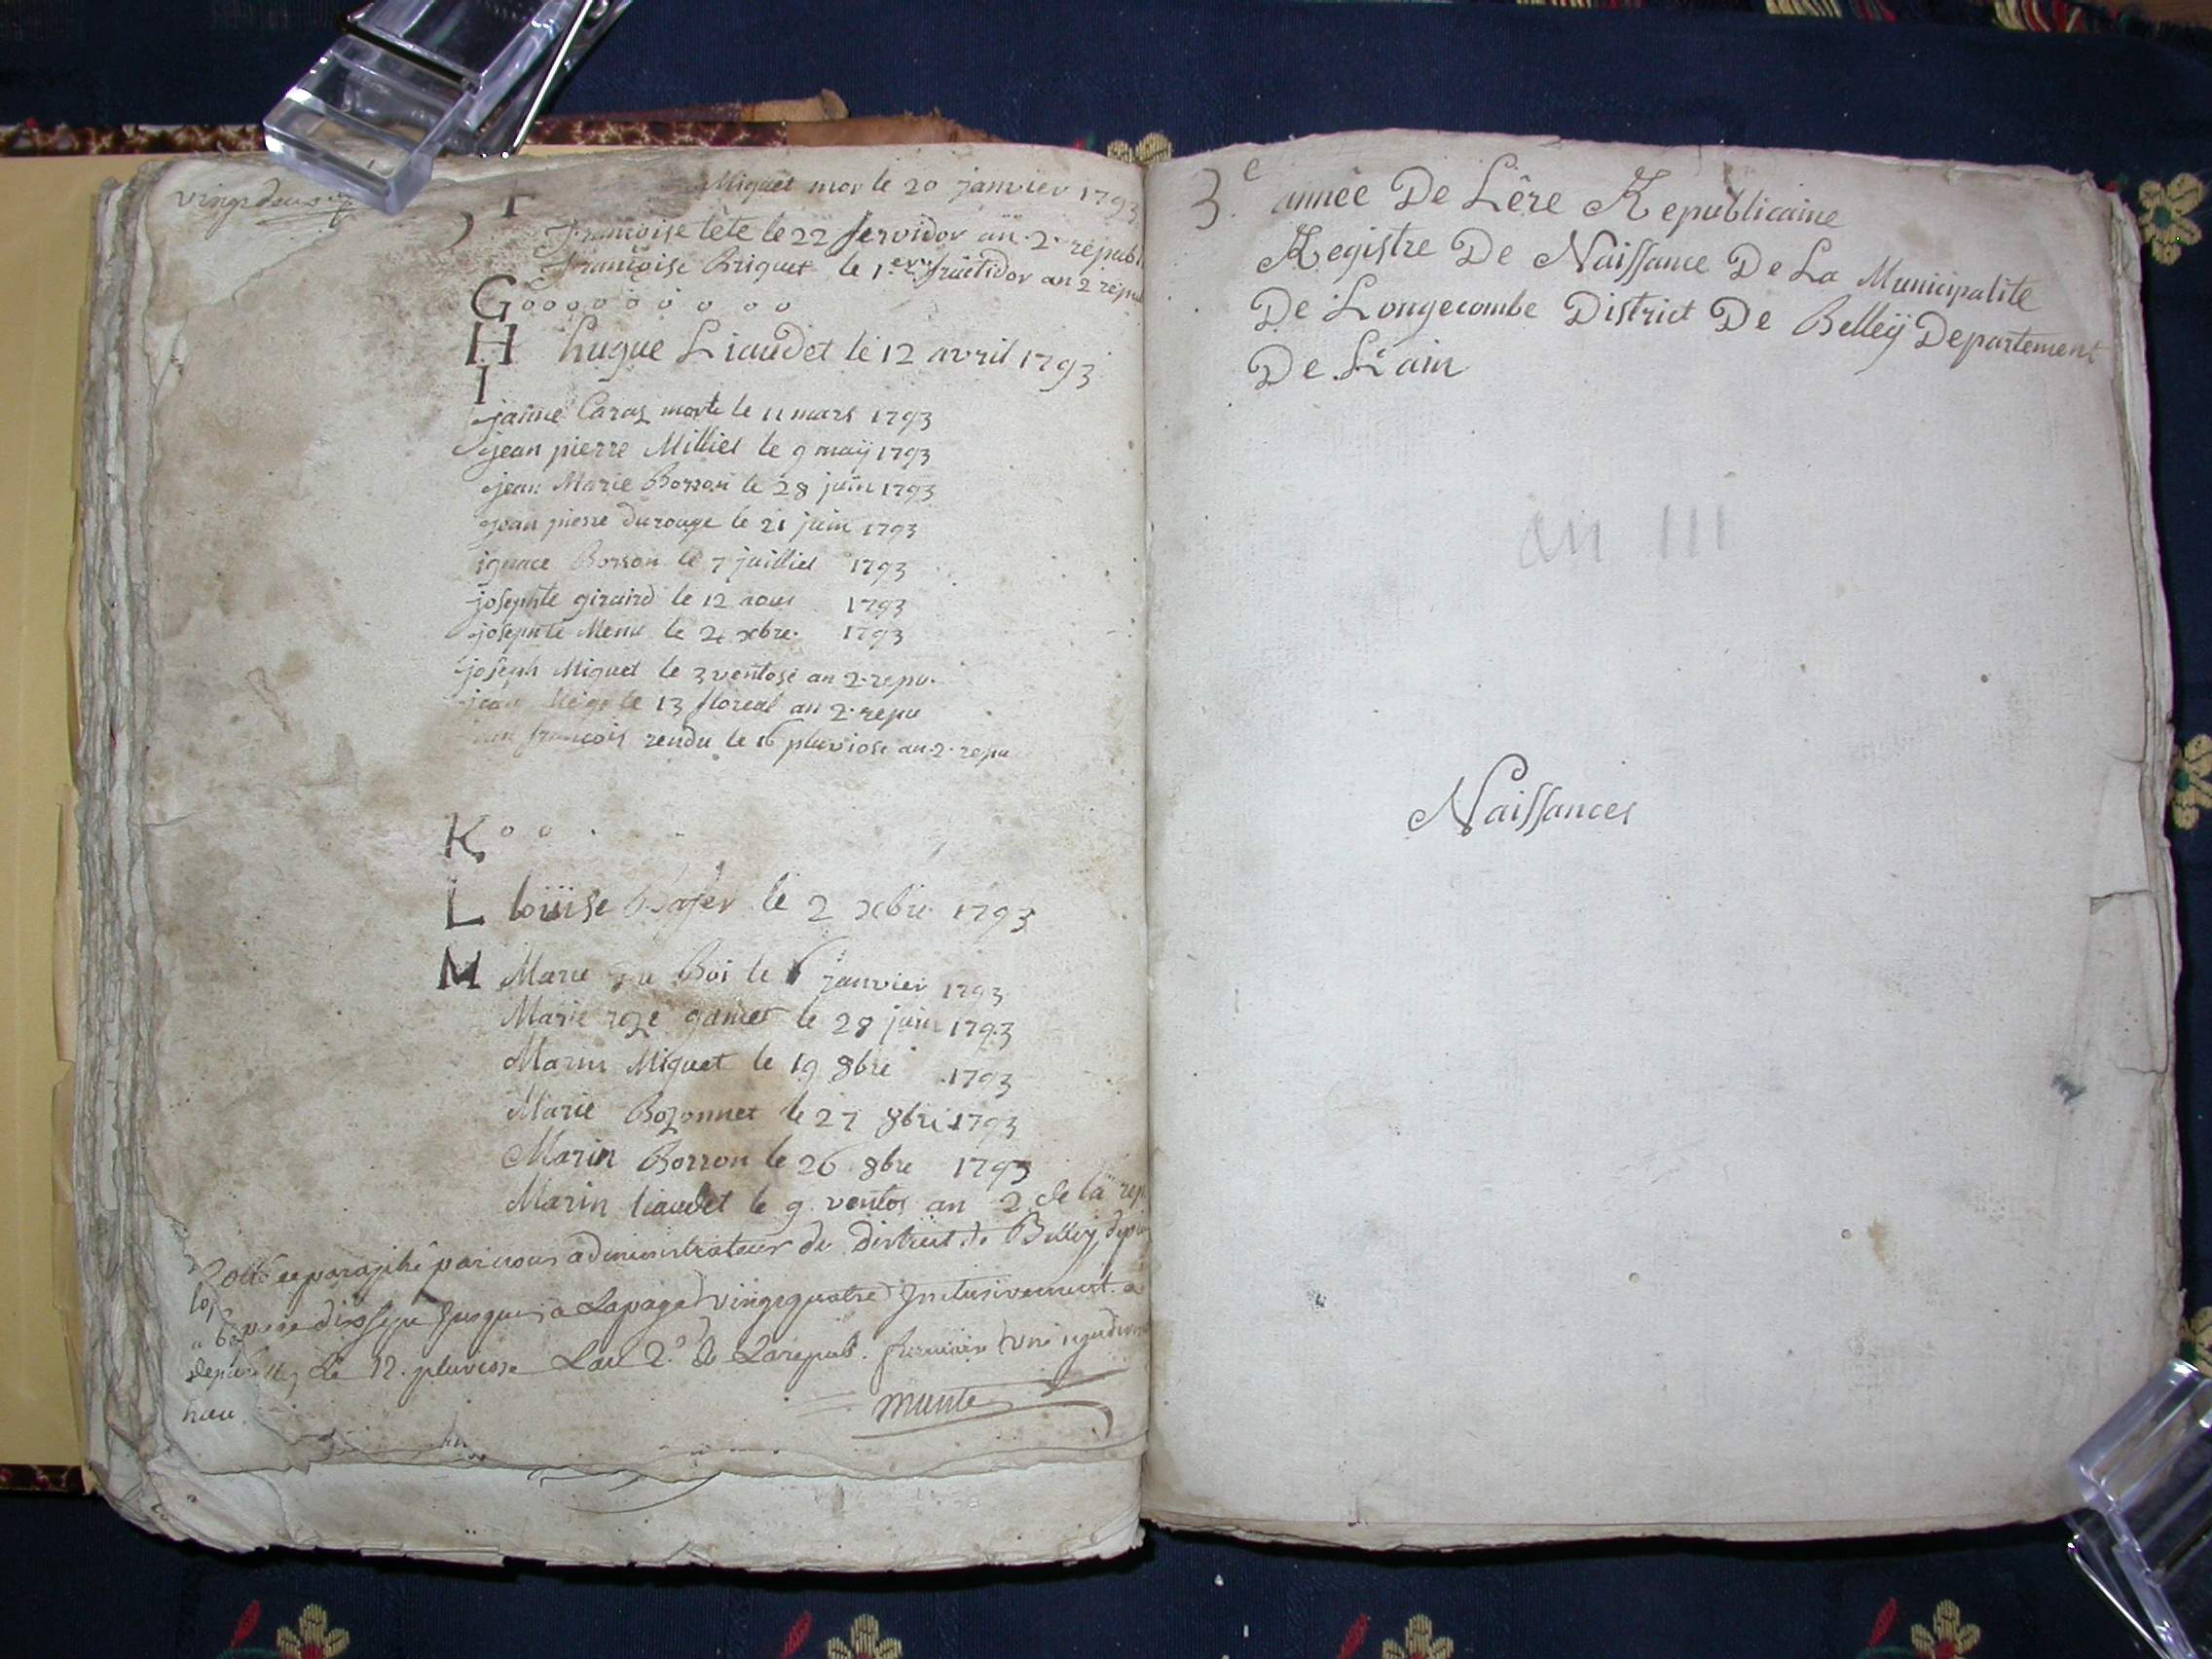 vingt deux
F
Miquet mor le 20 janvier 1793
Francoise tête le 22 fervidor an 2. republ
Francoise Briquet le 1er fructidor an 2 repu
G o o o o o o o o o
H hugue Liaudet le 12 avril 1793
I
janne Caraz morte le 11 mars 1793
jean pierre Milliet le 9 maÿ 1793
jean Marie Borron le 28 juin 1793
jean pierre durouge le 21 juin 1793
ignace Borron le 7 juilliet 1793
josephte girard le 12 aout 1793
josephte le 2 xbre 1793
joseph Miquet le 3 ventose an 2. repu.
jean le 13 floreal an 2. repu
francois rendu le 16 pluviose an 2. repu
K o o
L louise le 2 xbre 1793
M Marie du Boi le 6 janvier 1793
Marie roze le 28 juin 1793
Marin Miguet le 19 8bre 1793
Marie Bozonnet le 27 8bre 1793
Marin Borron le 26 8bre 1793
Marin liaudet le 9 ventos an 2 de la rep
Cotté et paraphé par nous administrateur du District de Belley
jusques a La page vingt quatre Inclusivement a
Belley Le 12. pluviose L'an 2.e de La repub.
3.e année De Lêre Republicaine
Registre De Naissance De La Municipalite
De Longecombe District De Belleÿ Departement
De L'ain
an III
Naissances